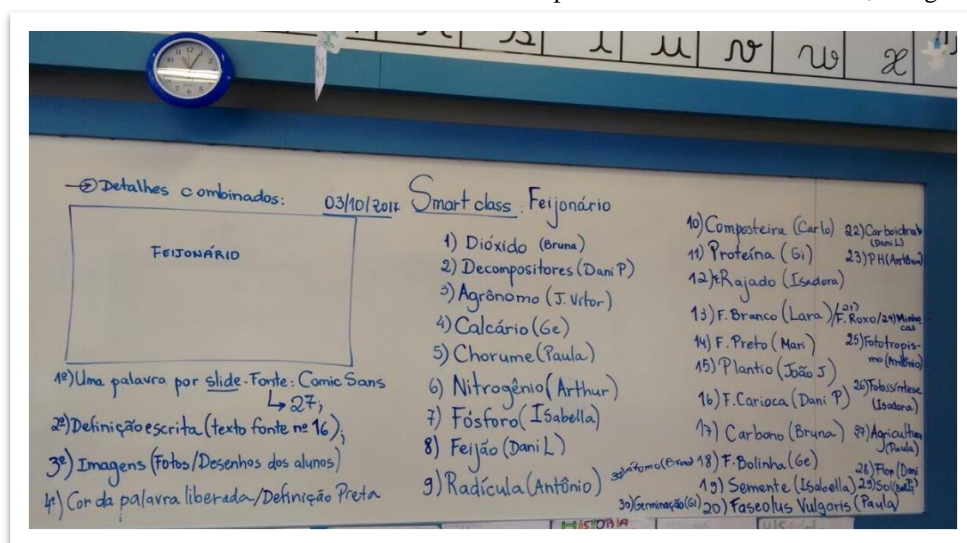 u v w x
→ Detalhes combinados:
03/10/2017 Smart class: Feijonário
FEIJONÁRIO
1º) Uma palavra por slide - Fonte: Comic Sans
↳ 27;
2º) Definição escrita (texto fonte nº 16);
3º) Imagens (Fotos/Desenhos dos alunos)
4º) Cor da palavra liberada/Definição Preta
1) Dióxido (Bruna)
2) Decompositores (Dani P)
3) Agrônomo (J. Vitor)
4) Calcário (Ge)
5) Chorume (Paula)
6) Nitrogênio (Arthur)
7) Fósforo (Isabella)
8) Feijão (Dani L)
9) Radícula (Antônio)
10) Composteira (Carlo)
11) Proteína (Gi)
12) F. Rajado (Isadora)
13) F. Branco (Lara) / 21) F. Roxo / 24) Minho
cas
14) F. Preto (Mari)
15) Plantio (João J)
16) F. Carioca (Dani P)
17) Carbono (Bruna)
18) F. Bolinha (Ge)
19) Semente (Isabella)
20) Faseolus Vulgaris (Paula)
22) Carboidrato
(Dani L)
23) PH (Antônio)
25) Fototropis-
mo (Antônio)
26) Fotossíntese
(Isadora)
27) Agricultura
(Paula)
28) Flor (Dani
29) Sol
30) Germinação (Gi)
HISTÓRIA